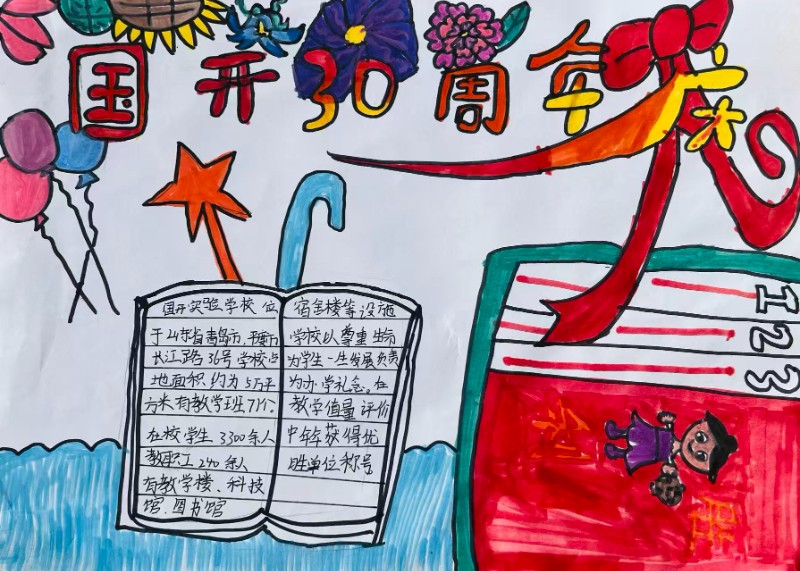 国开30周年庆
国开实验学校 位
于山东省青岛市.平度市
长江路 36号 学校占
地面积.约为 5万平
方米 有教学班 71个.
在校学生 3300余人
教职工 240余人
有教学楼、科技
馆.图书馆
宿舍楼等设施
学校以尊重生命
为学生一生发展负责
为办学礼念。在
教学值量评价
中年年获得优
胜单位称号
1
2
3